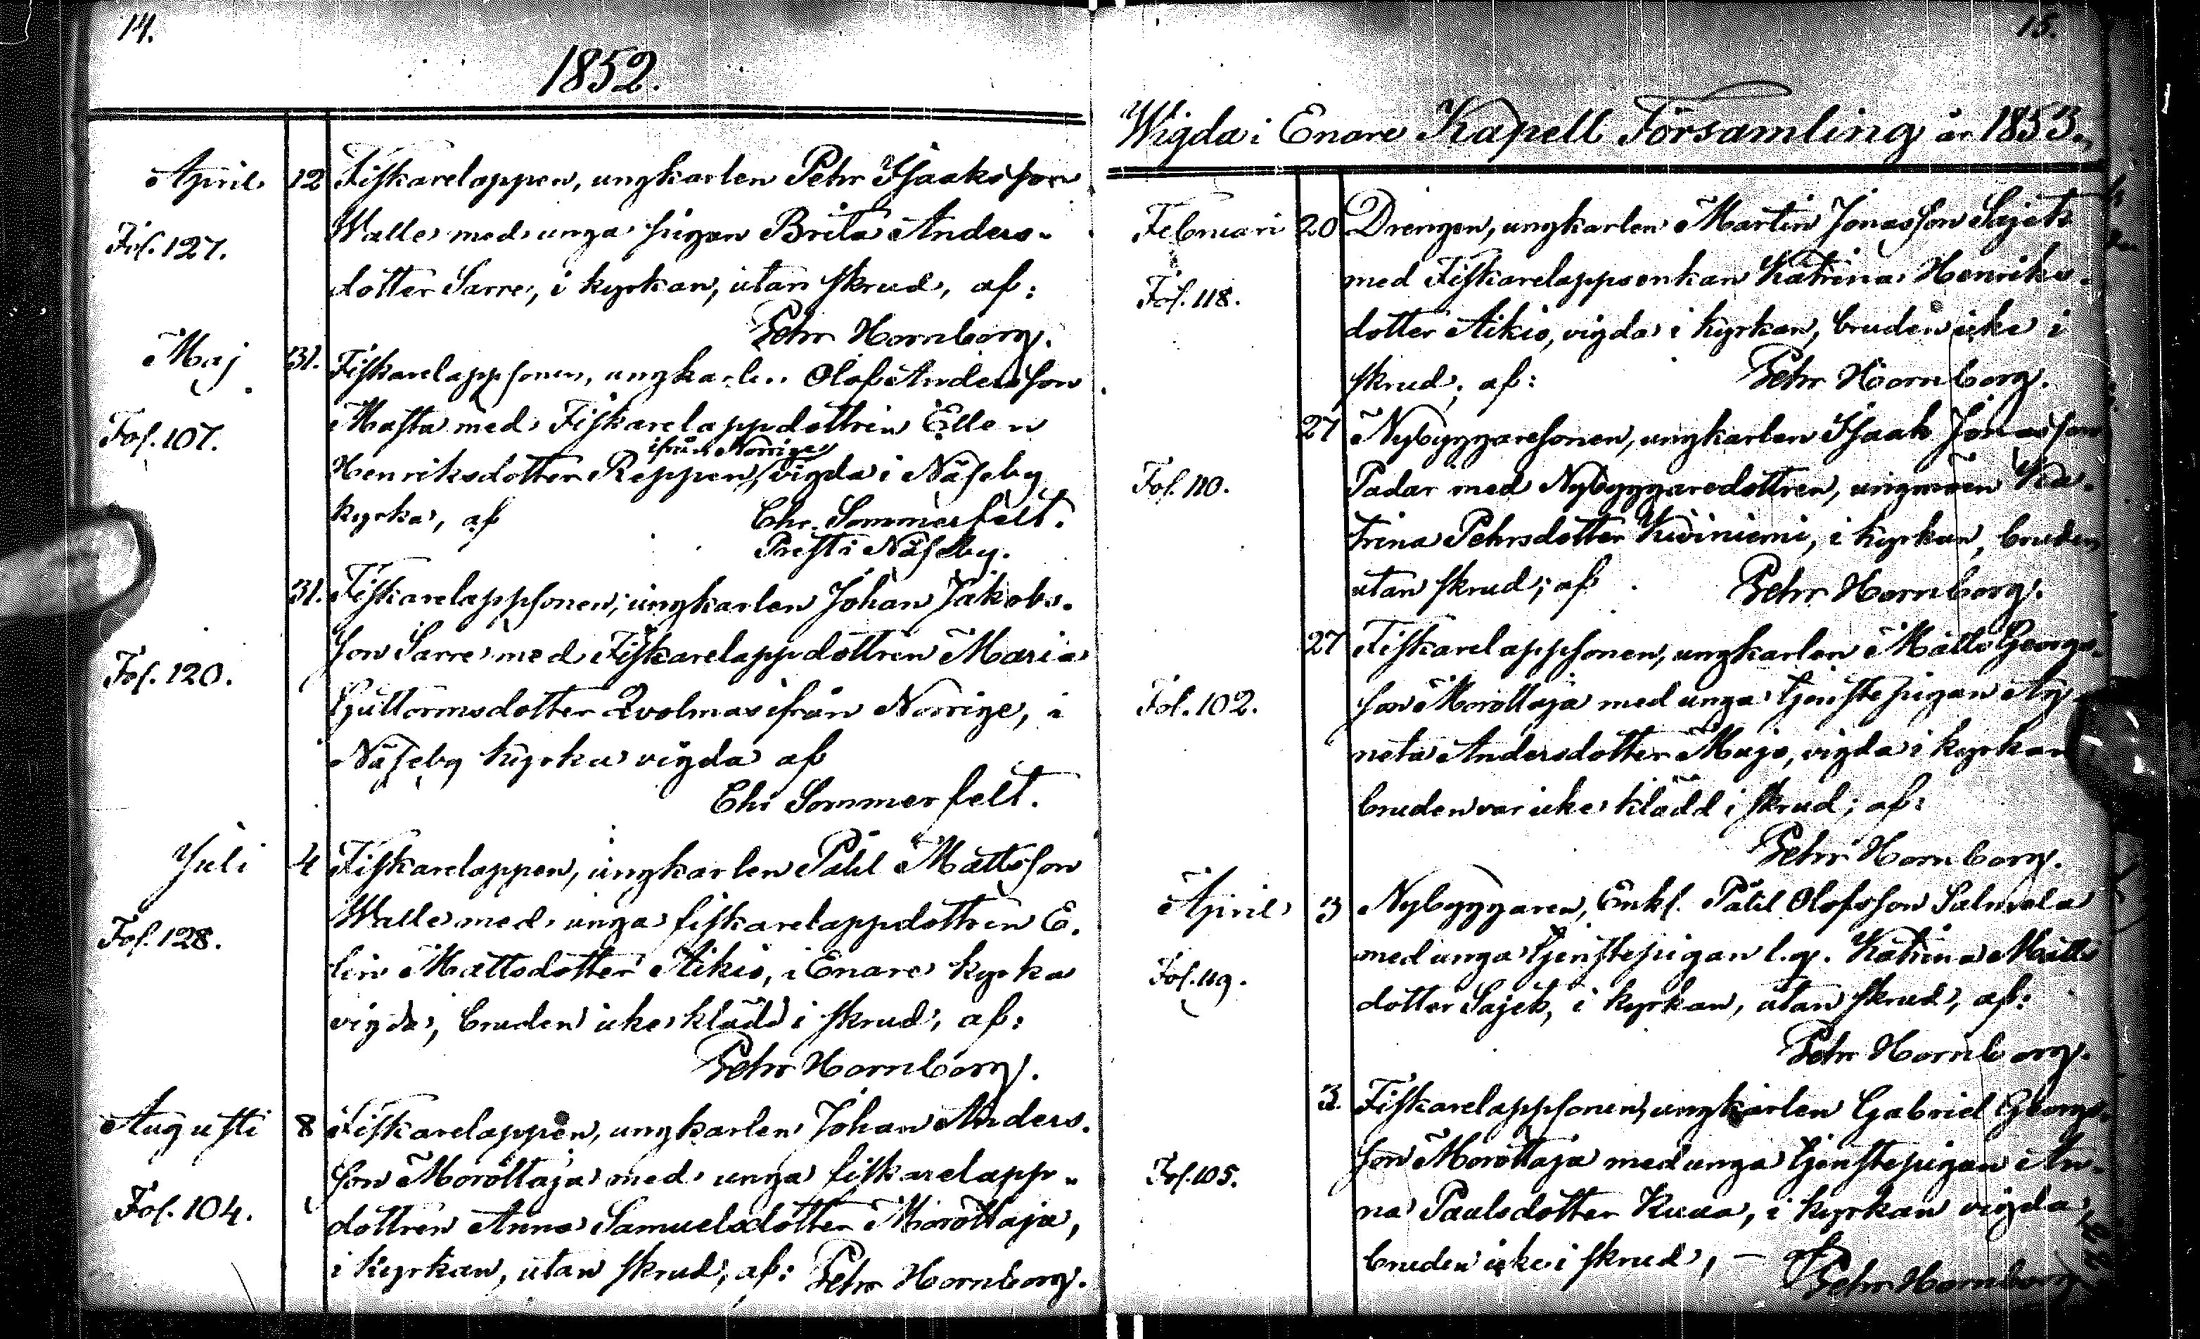 14.
1852.
April 12 Fiskarelappen, ungkarlen Pehr Isaaksson
Fol. 127. Walle med unga pigan Brita Anders-
dotter Sarre, i kyrkan, utan skrud, af:
Pehr Hornborg.
Maj 31. Fiskarelappsonen, ungkarlen Olof Andersson
Fol. 107. Masta med Fiskarelappdottren Ellen
ifrån Norrige
Henriksdotter Reppen, vigda i Näseby
kyrka, af Chr. Sommerfelt.
Prest i Näseby.
31. Fiskarelappsonen, ungkarlen Johan Jakobs-
Fol. 120. son Sarre med Fiskarelappdottren Maria
Guttormsdotter Qvolmas ifrån Norrige, i
Näseby kyrka vigda af
Chr Sommerfelt.
Juli 4 Fiskarelappen, ungkarlen Påhl Mattsson
Fol. 128. Walle med unga fiskarelappdottren E-
lin Mattsdotter Aikio, i Enare kyrka
vigda, bruden icke klädd i skrud, af:
Pehr Hornborg.
Augusti 8 Fiskarelappen, ungkarlen Johan Anders-
Fol. 104. son Morottaja med unga fiskarelapp-
dottren Anna Samuelsdotter Morottaja,
i kyrkan, utan skrud, af: Pehr Hornborg.
15.
Wigda i Enare Kapell Församling år 1853.
Februari 20 Drengen, ungkarlen Martin Jonasson Sajets
Fol. 118. med Fiskarelappsenkan Katrina Henriks-
dotter Aikio, vigda i kyrkan, bruden icke i
skrud, af: Pehr Hornborg.
27 Nybyggaresonen, ungkarlen Isaak Jonasson
Fol. 110. Padar med Nybyggaredottren, ungmön Ka-
trina Pehrsdotter Kiviniemi, i kyrkan, bruden
utan skrud; af Pehr Hornborg.
27 Fiskarelappsonen, ungkarlen Matts Georgs-
Fol. 102. son Morottaja med unga tjenstepigan Ag-
neta Andersdotter Mujo, vigda i kyrkan
bruden var icke klädd i skrud; af:
Pehr Hornborg.
April 3 Nybyggaren, Enkl. Påhl Olofsson Salmela
Fol. 119. med unga tjenstepigan l.q. Katrina Matts
dotter Sajets, i kyrkan, utan skrud, af:
Pehr Hornborg.
3. Fiskarelappsonen, ungkarlen Gabriel Georgs-
Fol. 105. son Morottaja med unga tjenstepigan An-
na Paulsdotter Kuua, i kyrkan vigda
bruden icke i skrud, — af
Pehr Hornborg